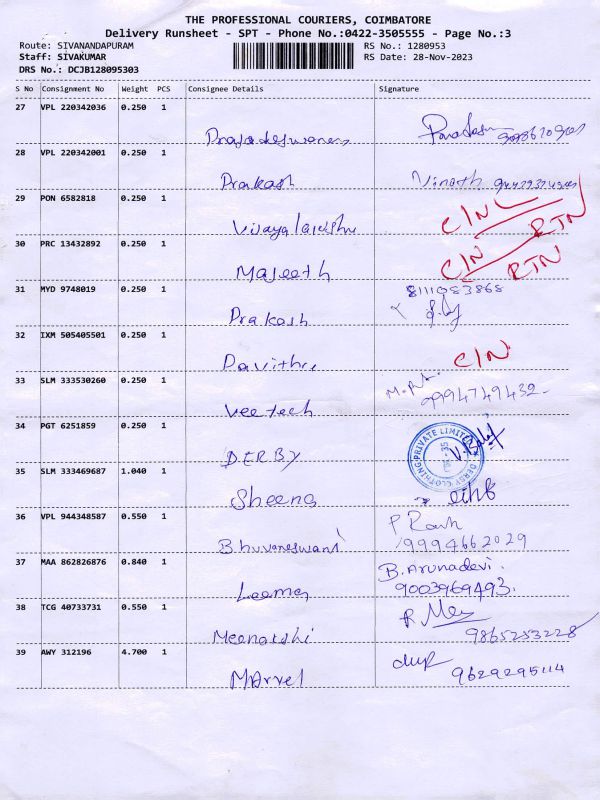 THE PROFESSIONAL COURIERS, COIMBATORE
Delivery Runsheet - SPT - Phone No.:0422-3505555 - Page No.:3
Route: SIVANANDAPURAM RS No.: 1280953
Staff: SIVAKUMAR RS Date: 28-Nov-2023
DRS No.: DCJB128095303
S No Consignment No Weight PCS Consignee Details Signature
27 VPL 220342036 0.250 1
28 VPL 220342001 0.250 1
Prakash Vinoth
29 PON 6582818 0.250 1
C/N RTN
30 PRC 13432892 0.250 1
Majeeth C/N RTN
31 MYD 9748019 0.250 1 8111083868
Prakash
32 IXM 505405501 0.250 1
Pavithra C/N
33 SLM 333530260 0.250 1
Veetech 9994749432
34 PGT 6251859 0.250 1
DERBY
DERBY CLOTHING PRIVATE LIMITED
35 SLM 333469687 1.040 1
Sheena
36 VPL 944348587 0.550 1
Bhuvaneswari 9999466 2029
37 MAA 862826876 0.840 1 B. Arunadevi.
Leema 9003969493.
38 TCG 40733731 0.550 1
Meenakshi 9865253228
39 AWY 312196 4.700 1
Marvel 9629295114